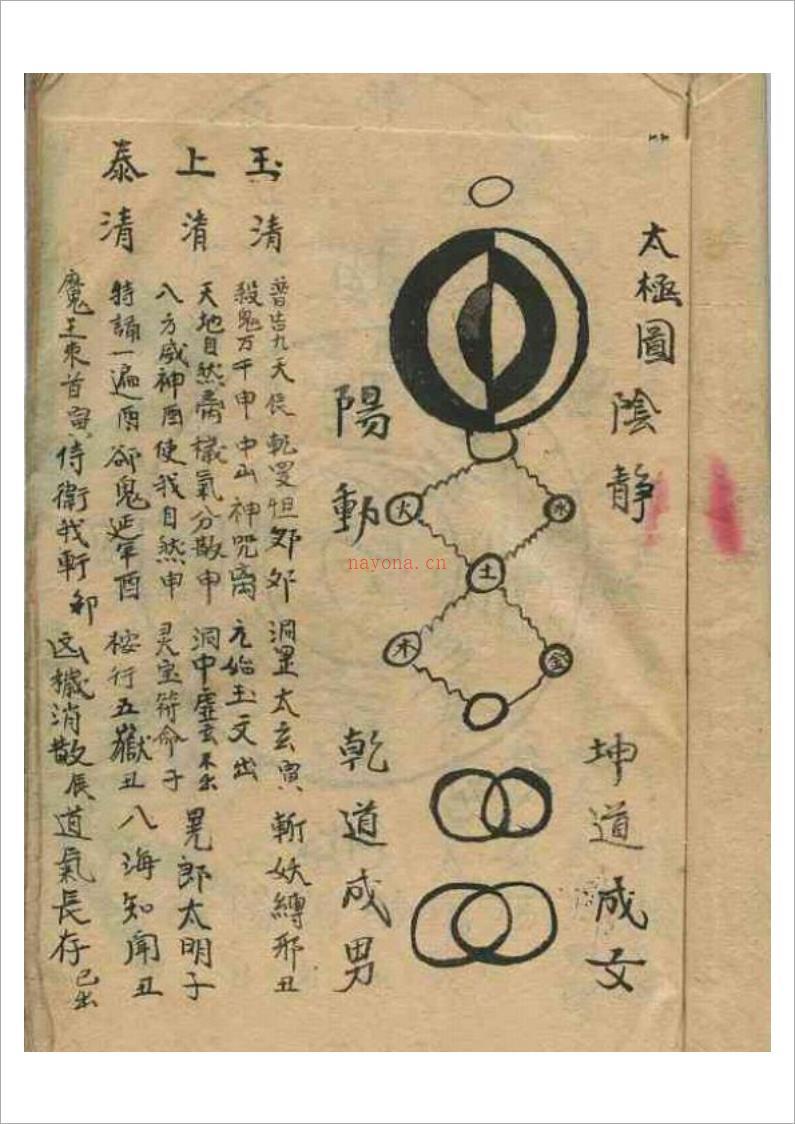 太極圖
陰靜
坤道成女
火
水
土
木
金
陽動
乾道成男
玉清
上清
泰清
普告九天 乾旻怛郊郊 洞罡太玄寅 斬妖縛邪丑
殺鬼万千申 中山神咒离 元始玉文出
天地自然 穢氣分散申 洞中虛玄未出 晃郎太明子
八方威神酉 使我自然申 灵宝符命子
特誦一遍酉 郤鬼延年酉 桉行五嶽丑 八海知聞丑
魔王束首寅 侍衛我軒卯 凶穢消散辰 道氣長存 巳出
nayona.cn